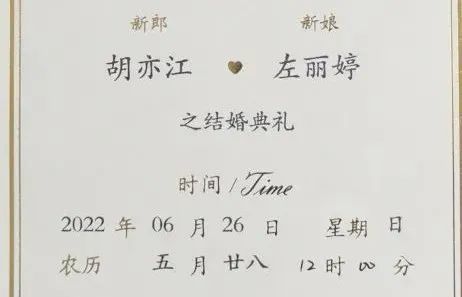 新郎 新娘
胡亦江 左丽婷
之结婚典礼
时间/Time
2022 年 06 月 26 日 星期 日
农历 五 月 廿八 12 时 00 分